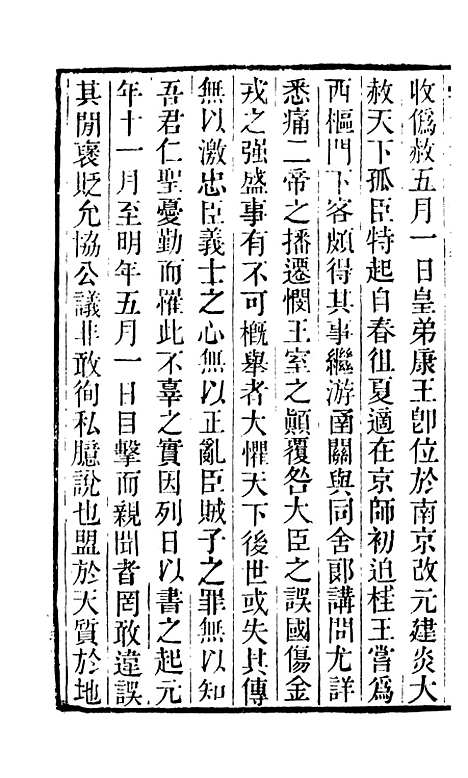 收僞赦五月一日皇弟康王卽位於南京改元建炎大
赦天下孤臣特起自春徂夏適在京師初迫桂王嘗爲
西樞門下客頗得其事繼游甬關與同舍郞講問尤詳
悉痛二帝之播遷憫王室之顚覆咎大臣之誤國傷金
戎之强盛事有不可槪舉者大懼天下後世或失其傳
無以激忠臣義士之心無以正亂臣賊子之罪無以知
吾君仁聖憂勤而罹此不辜之實因列日以書之起元
年十一月至明年五月一日目擊而親聞者罔敢違誤
其閒褒貶允協公議非敢徇私臆說也盟於天質於地